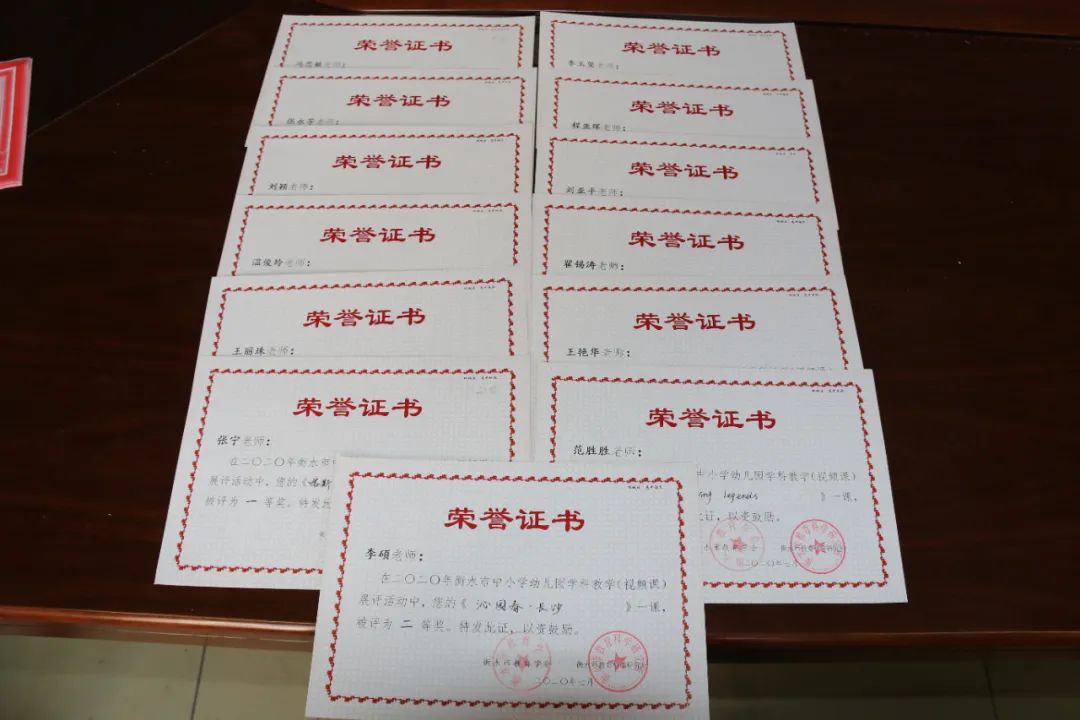 荣誉证书
老师:
荣誉证书
张永芳老师:
荣誉证书
刘颖老师:
荣誉证书
温俊玲老师:
荣誉证书
王丽珠老师:
荣誉证书
张宁老师:
在二〇二〇年衡水市中
展评活动中,您的《塔斯
被评为 一 等奖。特发
荣誉证书
老师:
荣誉证书
程亚辉老师:
荣誉证书
刘亚平老师:
荣誉证书
翟锡涛老师:
荣誉证书
王艳华老师:
荣誉证书
范胜胜老师:
中小学幼儿园学科教学(视频课)
》一课,
此证,以资鼓励。
二〇二〇年七月
荣誉证书
李硕老师:
在二〇二〇年衡水市中小学幼儿园学科教学(视频课)
展评活动中,您的《 沁园春·长沙 》一课,
被评为 二 等奖。特发此证,以资鼓励。
衡水市教育学会
二〇二〇年七月